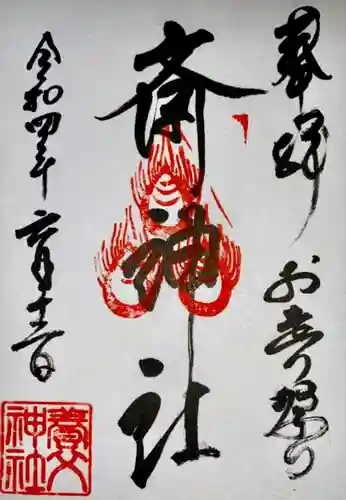 奉拝 お走り祭り
斎神社
令和四年六月十二日
養父
神社